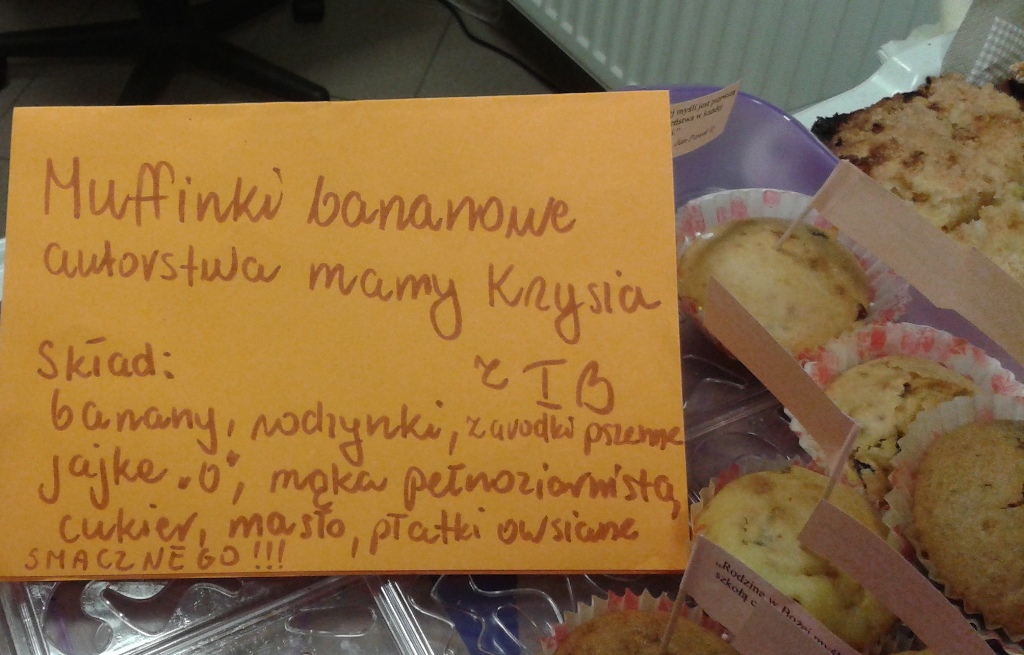 Muffinki bananowe
autorstwa mamy Krzysia
z I B
Skład:
banany, rodzynki, zarodki pszenne
jajke „0", mąka pełnoziarnistą,
cukier, masło, płatki owsiane
SMACZNEGO!!!
myśli jest pierwsza
w
Jan Paweł II
„Rodzina w Bożej
szkołą c